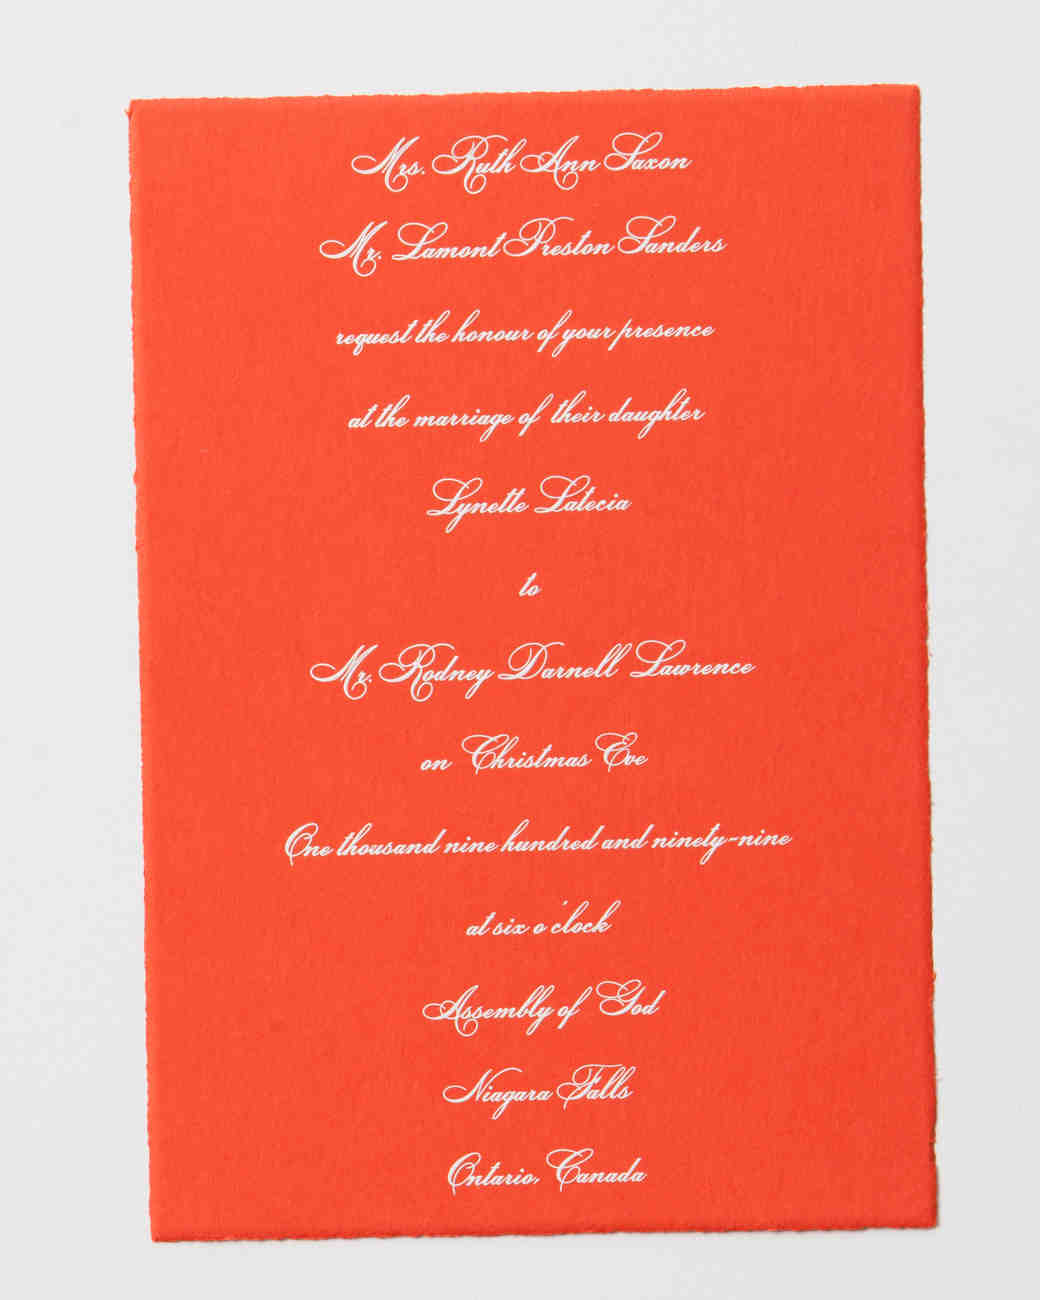 Mrs. Ruth Ann Saxon
Mr. Lamont Preston Sanders
request the honour of your presence
at the marriage of their daughter
Lynette Latecia
to
Mr. Rodney Darnell Lawrence
on Christmas Eve
One thousand nine hundred and ninety-nine
at six o'clock
Assembly of God
Niagara Falls
Ontario, Canada